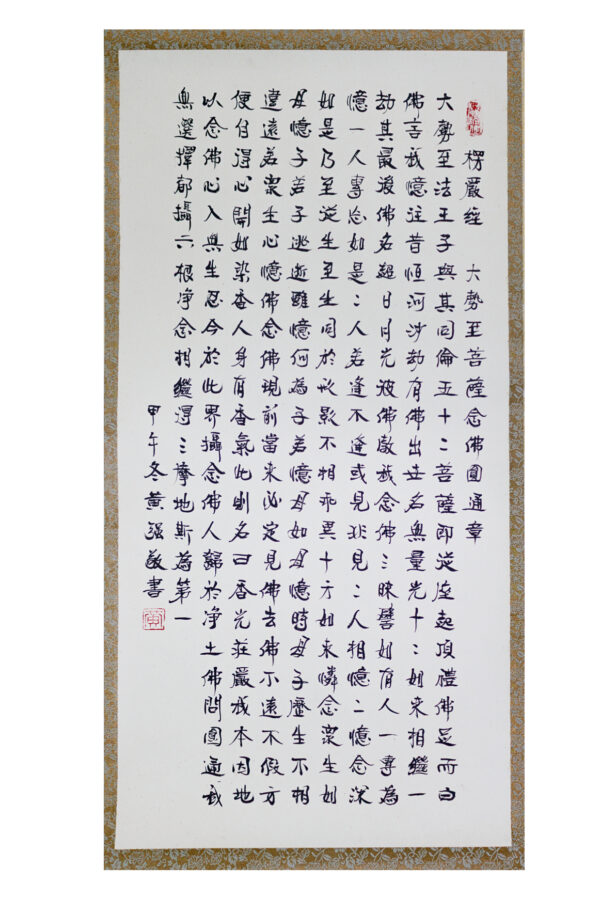 楞嚴經 大勢至菩薩念佛圓通章
大勢至法王子與其同倫五十二菩薩即從座起頂禮佛足而白
佛言我憶往昔恒河沙劫有佛出世名無量光十二如來相繼一
劫其最後佛名超日月光彼佛教我念佛三昧譬如有人一專為
憶一人專忘如是二人若逢不逢或見非見二人相憶二憶念深
如是乃至從生至生同於形影不相乖異十方如來憐念眾生如
母憶子若子逃逝雖憶何為子若憶母如母憶時母子歷生不相
違遠若眾生心憶佛念佛現前當來必定見佛去佛不遠不假方
便自得心開如染香人身有香氣此則名曰香光莊嚴我本因地
以念佛心入無生忍今於此界攝念佛人歸於淨土佛問圓通我
無選擇都攝六根淨念相繼得三摩地斯為第一
甲午冬黃強敬書